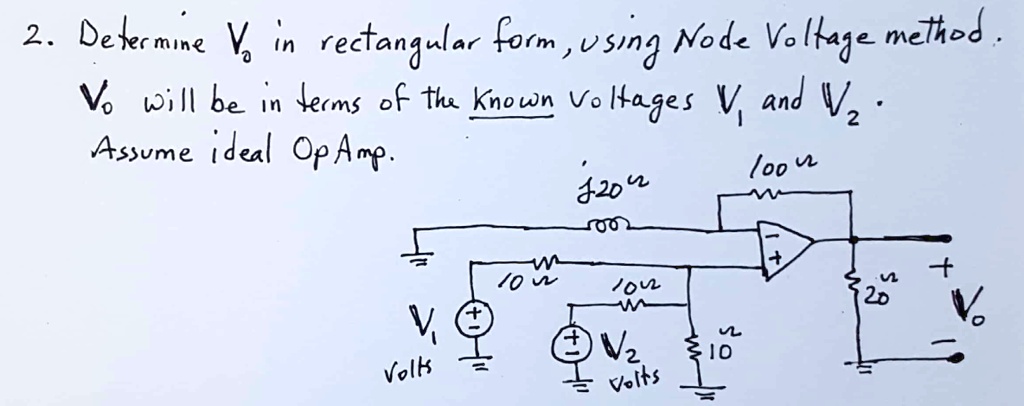 2. Determine Vo in rectangular form, using Node Voltage method.
Vo will be in terms of the Known Voltages V1 and V2.
Assume ideal Op Amp.
j20Ω
100Ω
-
+
10Ω
10Ω
20Ω
+
Vo
-
V1
+
-
Volts
+
-
V2
Volts
10Ω